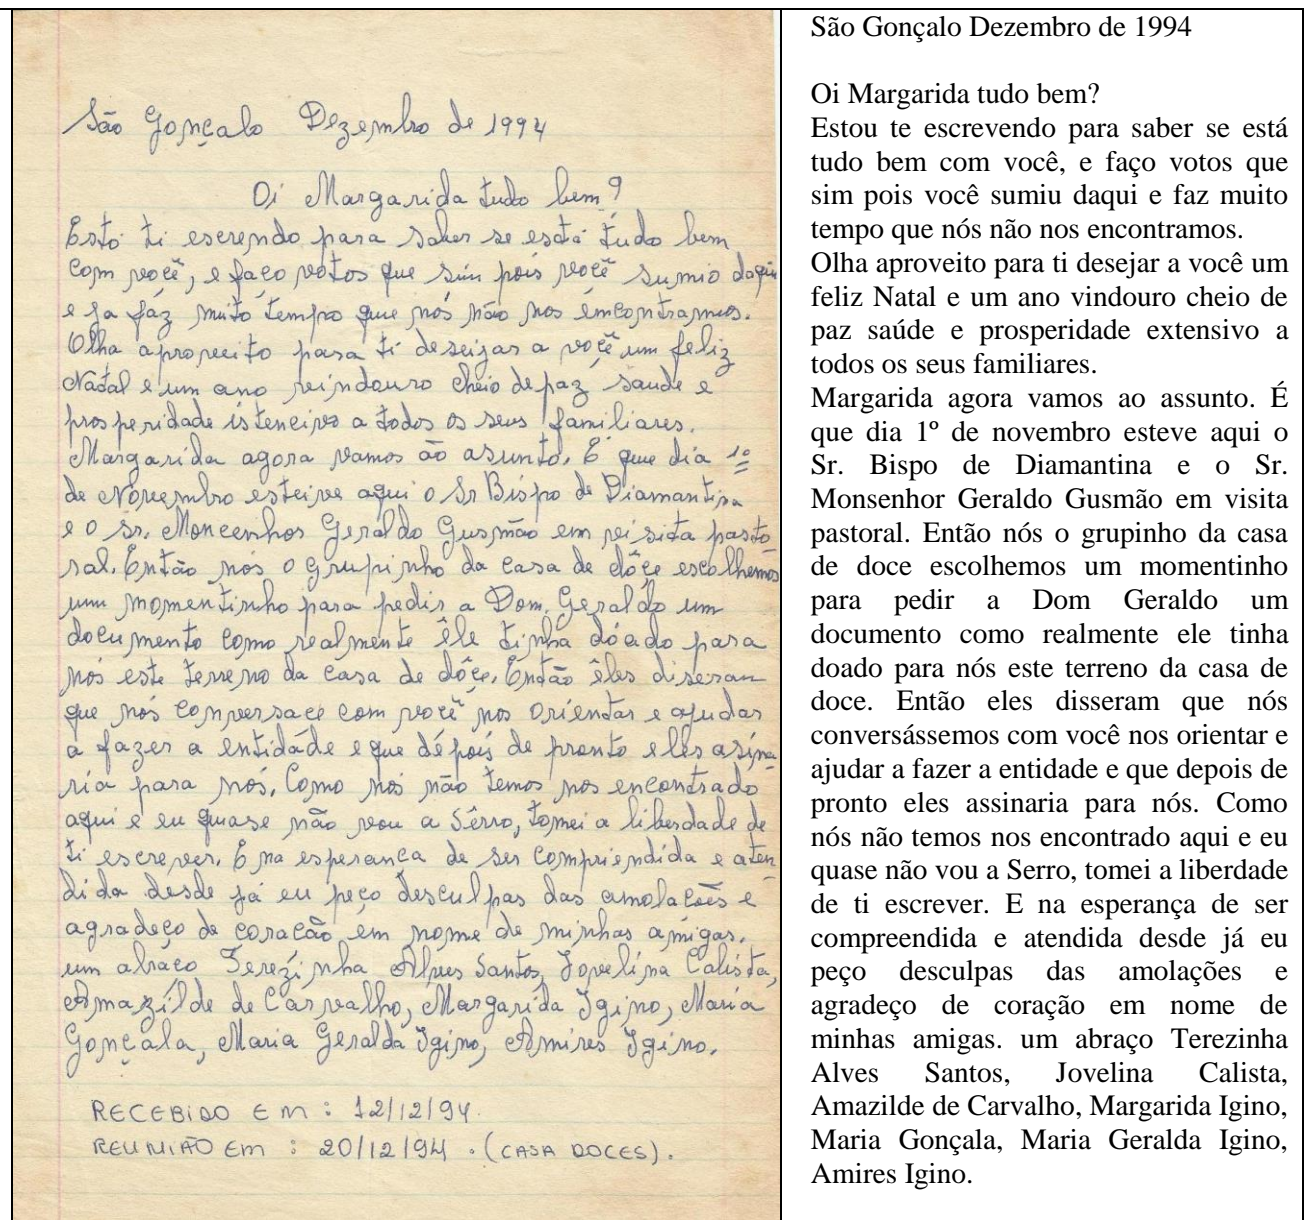 São Gonçalo Dezembro de 1994
Oi Margarida tudo bem?
Estó ti escrendo para saber se está tudo bem
com você, e faço votos que sim pois você sumio daqui
e ja fáz muito tempo que nós não nos émcontramos.
Olha aproveito para ti deseijar a você um feliz
Natal e um ano veindouro cheio de paz saude e
prosperidade istencivo a todos os seus familiares.
Margarida agora vamos ào asunto. É que dia 1º
de Novembro esteive aqui o Sr Bispo de Diamantina
e o sr. Moncenhor Geraldo Gusmão em veisita pasto-
ral. Então nós o grupinho da casa de dôçe escolhemos
um momentinho para pedir a Dom. Geraldo um
documento como realmente êle tinha dóado para
nós este terreno da casa de dôçe. Então êles diseran
que nós conversace com você nos orientar e ajudar
a fazer a entidade e que dépois de pronto elles asina-
ria para nós. Como nós não temos nos encontrado
aqui e eu quase não vou a Sêrro, tomei a liberdade de
ti escrever. E na esperança de ser compriendida e aten
dida desde já eu peço desculpas das amolações e
agradeço de coracão em nome de minhas amigas.
um abraco Terezinha Alves Santos, Jovelina Calista,
Amazilde de Carvalho, Margarida Igino, Maria
Gonçala, Maria Geralda Igino, Amires Igino.
RECEBIDO EM : 12/12/94.
REUNIÃO EM : 20/12/94 . (CASA DOCES).
São Gonçalo Dezembro de 1994
Oi Margarida tudo bem?
Estou te escrevendo para saber se está
tudo bem com você, e faço votos que
sim pois você sumiu daqui e faz muito
tempo que nós não nos encontramos.
Olha aproveito para ti desejar a você um
feliz Natal e um ano vindouro cheio de
paz saúde e prosperidade extensivo a
todos os seus familiares.
Margarida agora vamos ao assunto. É
que dia 1º de novembro esteve aqui o
Sr. Bispo de Diamantina e o Sr.
Monsenhor Geraldo Gusmão em visita
pastoral. Então nós o grupinho da casa
de doce escolhemos um momentinho
para pedir a Dom Geraldo um
documento como realmente ele tinha
doado para nós este terreno da casa de
doce. Então eles disseram que nós
conversássemos com você nos orientar e
ajudar a fazer a entidade e que depois de
pronto eles assinaria para nós. Como
nós não temos nos encontrado aqui e eu
quase não vou a Serro, tomei a liberdade
de ti escrever. E na esperança de ser
compreendida e atendida desde já eu
peço desculpas das amolações e
agradeço de coração em nome de
minhas amigas. um abraço Terezinha
Alves Santos, Jovelina Calista,
Amazilde de Carvalho, Margarida Igino,
Maria Gonçala, Maria Geralda Igino,
Amires Igino.